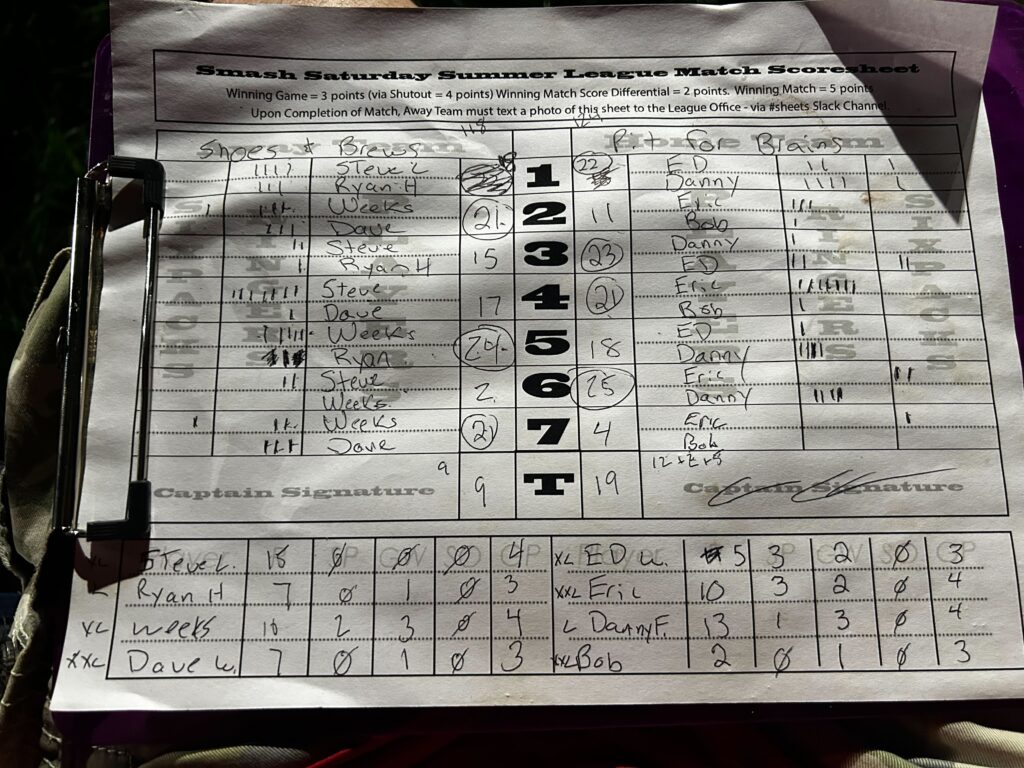 Smash Saturday Summer League Match Scoresheet
Winning Game = 3 points (via Shutout = 4 points) Winning Match Score Differential = 2 points. Winning Match = 5 points
Upon Completion of Match, Away Team must text a photo of this sheet to the League Office - via #sheets Slack Channel.
118
Shoes & Brews Put For Brains
Steve L 1 22 ED
Ryan H Danny
Weeks 21 2 11 Eric
Dave Bob
Steve 15 3 23 Danny
Ryan H ED
Steve 17 4 21 Eric
Dave Bob
Weeks 5 18 ED
Ryan Danny
Steve 2 6 25 Eric
Weeks Danny
Weeks 21 7 4 Eric
Dave Bob
9 12 + 2 + 5
Captain Signature 9 T 19 Captain Signature
XL Steve L. 18 0 0 0 4 XL ED W. 5 3 2 0 3
Ryan H 7 0 1 0 3 XXL Eric 10 3 2 0 4
XL Weeks 2 3 0 4 L Danny F. 13 1 3 0 4
XXL Dave W. 7 0 1 0 3 XXL Bob 2 0 1 0 3